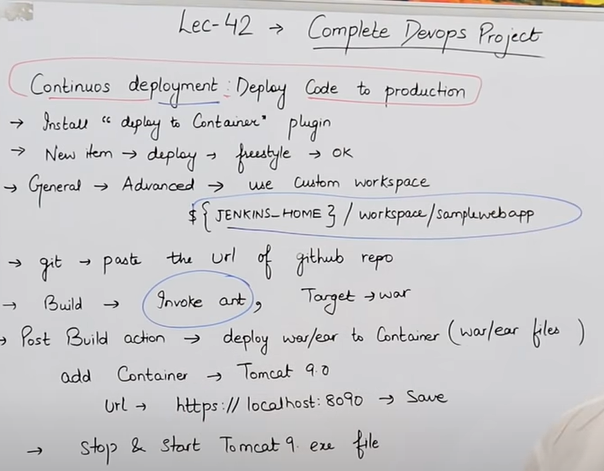 Lec-42 → Complete Devops Project
Continuos deployment : Deploy Code to production
→ Install "deploy to Container" plugin
→ New item → deploy → freestyle → OK
→ General → Advanced → use custom workspace
${JENKINS_HOME}/workspace/samplewebapp
→ git → paste the url of github repo
→ Build → Invoke ant, Target → war
→ Post Build action → deploy war/ear to Container (war/ear files)
add Container → Tomcat 9.0
Url → https://localhost:8090 → Save
→ Stop & Start Tomcat 9. exe file